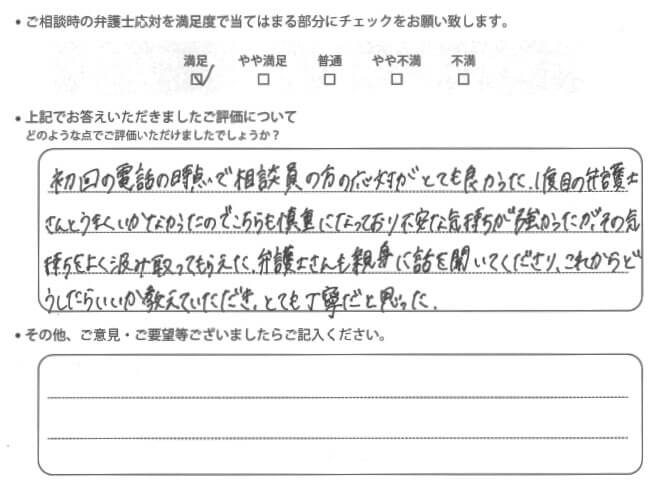 ・ご相談時の弁護士応対を満足度で当てはまる部分にチェックをお願い致します。
満足 やや満足 普通 やや不満 不満
・上記でお答えいただきましたご評価について
どのような点でご評価いただけましたでしょうか？
初回の電話の時点で相談員の方の応対がとても良かった。1度目の弁護士
さんとうまくいかなかったのでこちらも慎重になっており不安な気持ちが強かったが、その気
持ちをよく汲み取ってもらえた。弁護士さんも親身に話を聞いてくださり、これからど
うしたらいいか教えていただき、とても丁寧だと思った。
・その他、ご意見・ご要望等ございましたらご記入ください。